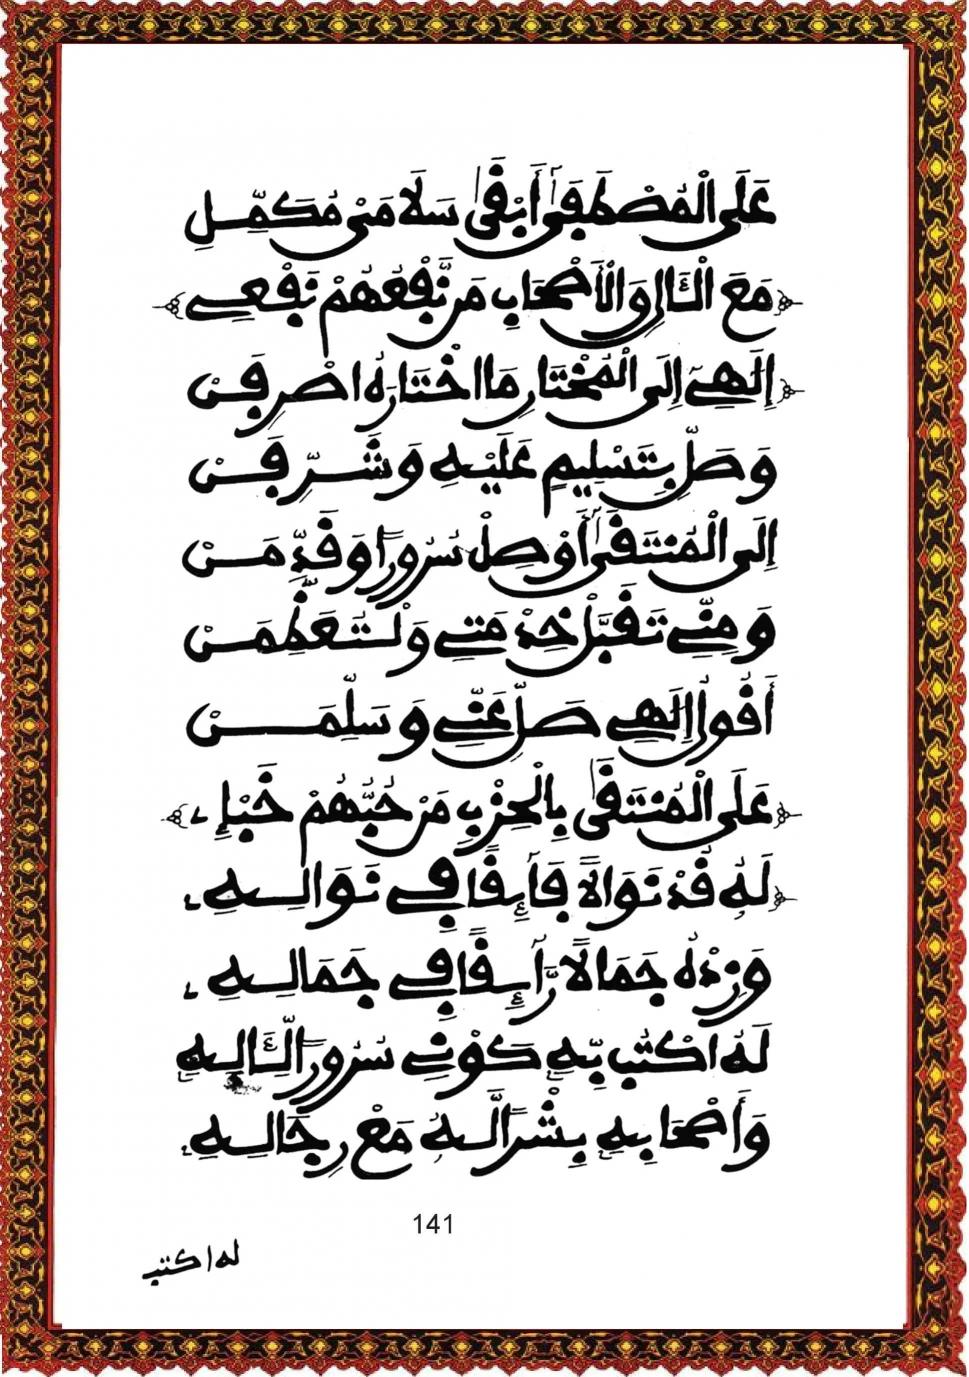 عَلَى الْمُصْطَفَى أَبْقَى سَلَامَىْ مُكَمِّلِ
مَعَ الْـَٔالِ وَالْأَصْحَابِ مَن نَّفْعُهُمْ نَفْعِے
إِلَهِے إِلَى الْمُخْتَارِ مَا اخْتَارَهُ اصْرِفَنْ
وَصَلِّ بِتَسْلِيمٍ عَلَيْهِ وَشَرِّفَنْ
إِلَى الْمُنتَقَى أَوْصِلْ سُرُورًا وَقَدِّمَنْ
وَمِنِّے تَقَبَّلْ خِدْمَتِے وَلْتُعَظِّمَنْ
أَقُولُ إِلَهِے صَلِّ عَنِّے وَسَلِّمَنْ
عَلَى الْمُنتَقَى بِالْحِزْبِ مَنْ حُبُّهُمْ خَبْءِ
لَهُ قُدْ نَوَالًا فَآئِقًا فِے نَوَالِهِ
وَزِدْهُ جَمَالًا رَّآئِقًا فِے جَمَالِهِ
لَهُ اكْتُب بِّهِ كَوْنِے سُرُورًا لِّـَٔالِهِ
وَأَصْحَابِهِ بِشْرًا لَّهُ مَعْ رِجَالِهِ
141
له اكتب